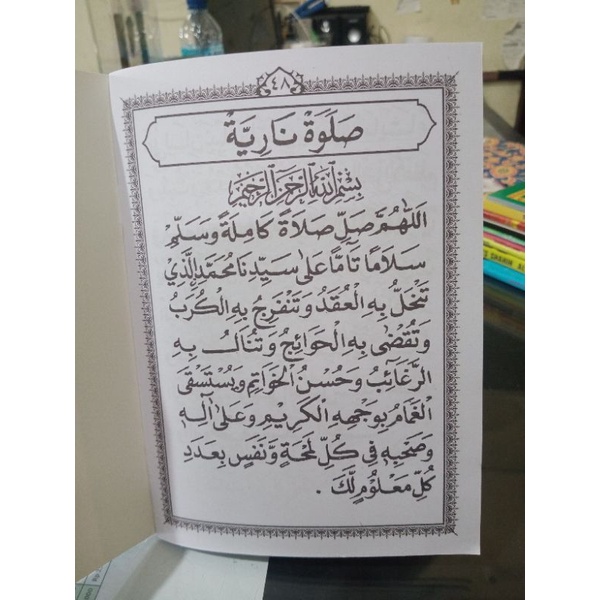 ٤٨
صَلَوةْ نَارِيَّةْ
بِسْمِ اللّٰهِ الرَّحْمٰنِ الرَّحِيْمِ
اَللّٰهُمَّ صَلِّ صَلَاةً كَامِلَةً وَسَلِّمْ
سَلَامًا تَامًّا عَلىٰ سَيِّدِنَا مُحَمَّدِ ۨالَّذِيْ
تَنْحَلُّ بِهِ الْعُقَدُ وَتَنْفَرِجُ بِهِ الْكُرَبُ
وَتُقْضٰى بِهِ الْحَوَائِجُ وَتُنَالُ بِهِ
الرَّغَائِبُ وَحُسْنُ الْخَوَاتِمِ وَيُسْتَسْقَى
الْغَمَامُ بِوَجْهِهِ الْكَرِيْمِ وَعَلىٰ اٰلِهِ
وَصَحْبِهِ فِيْ كُلِّ لَمْحَةٍ وَّنَفَسٍ بِعَدَدِ
كُلِّ مَعْلُوْمٍ لَّكَ .